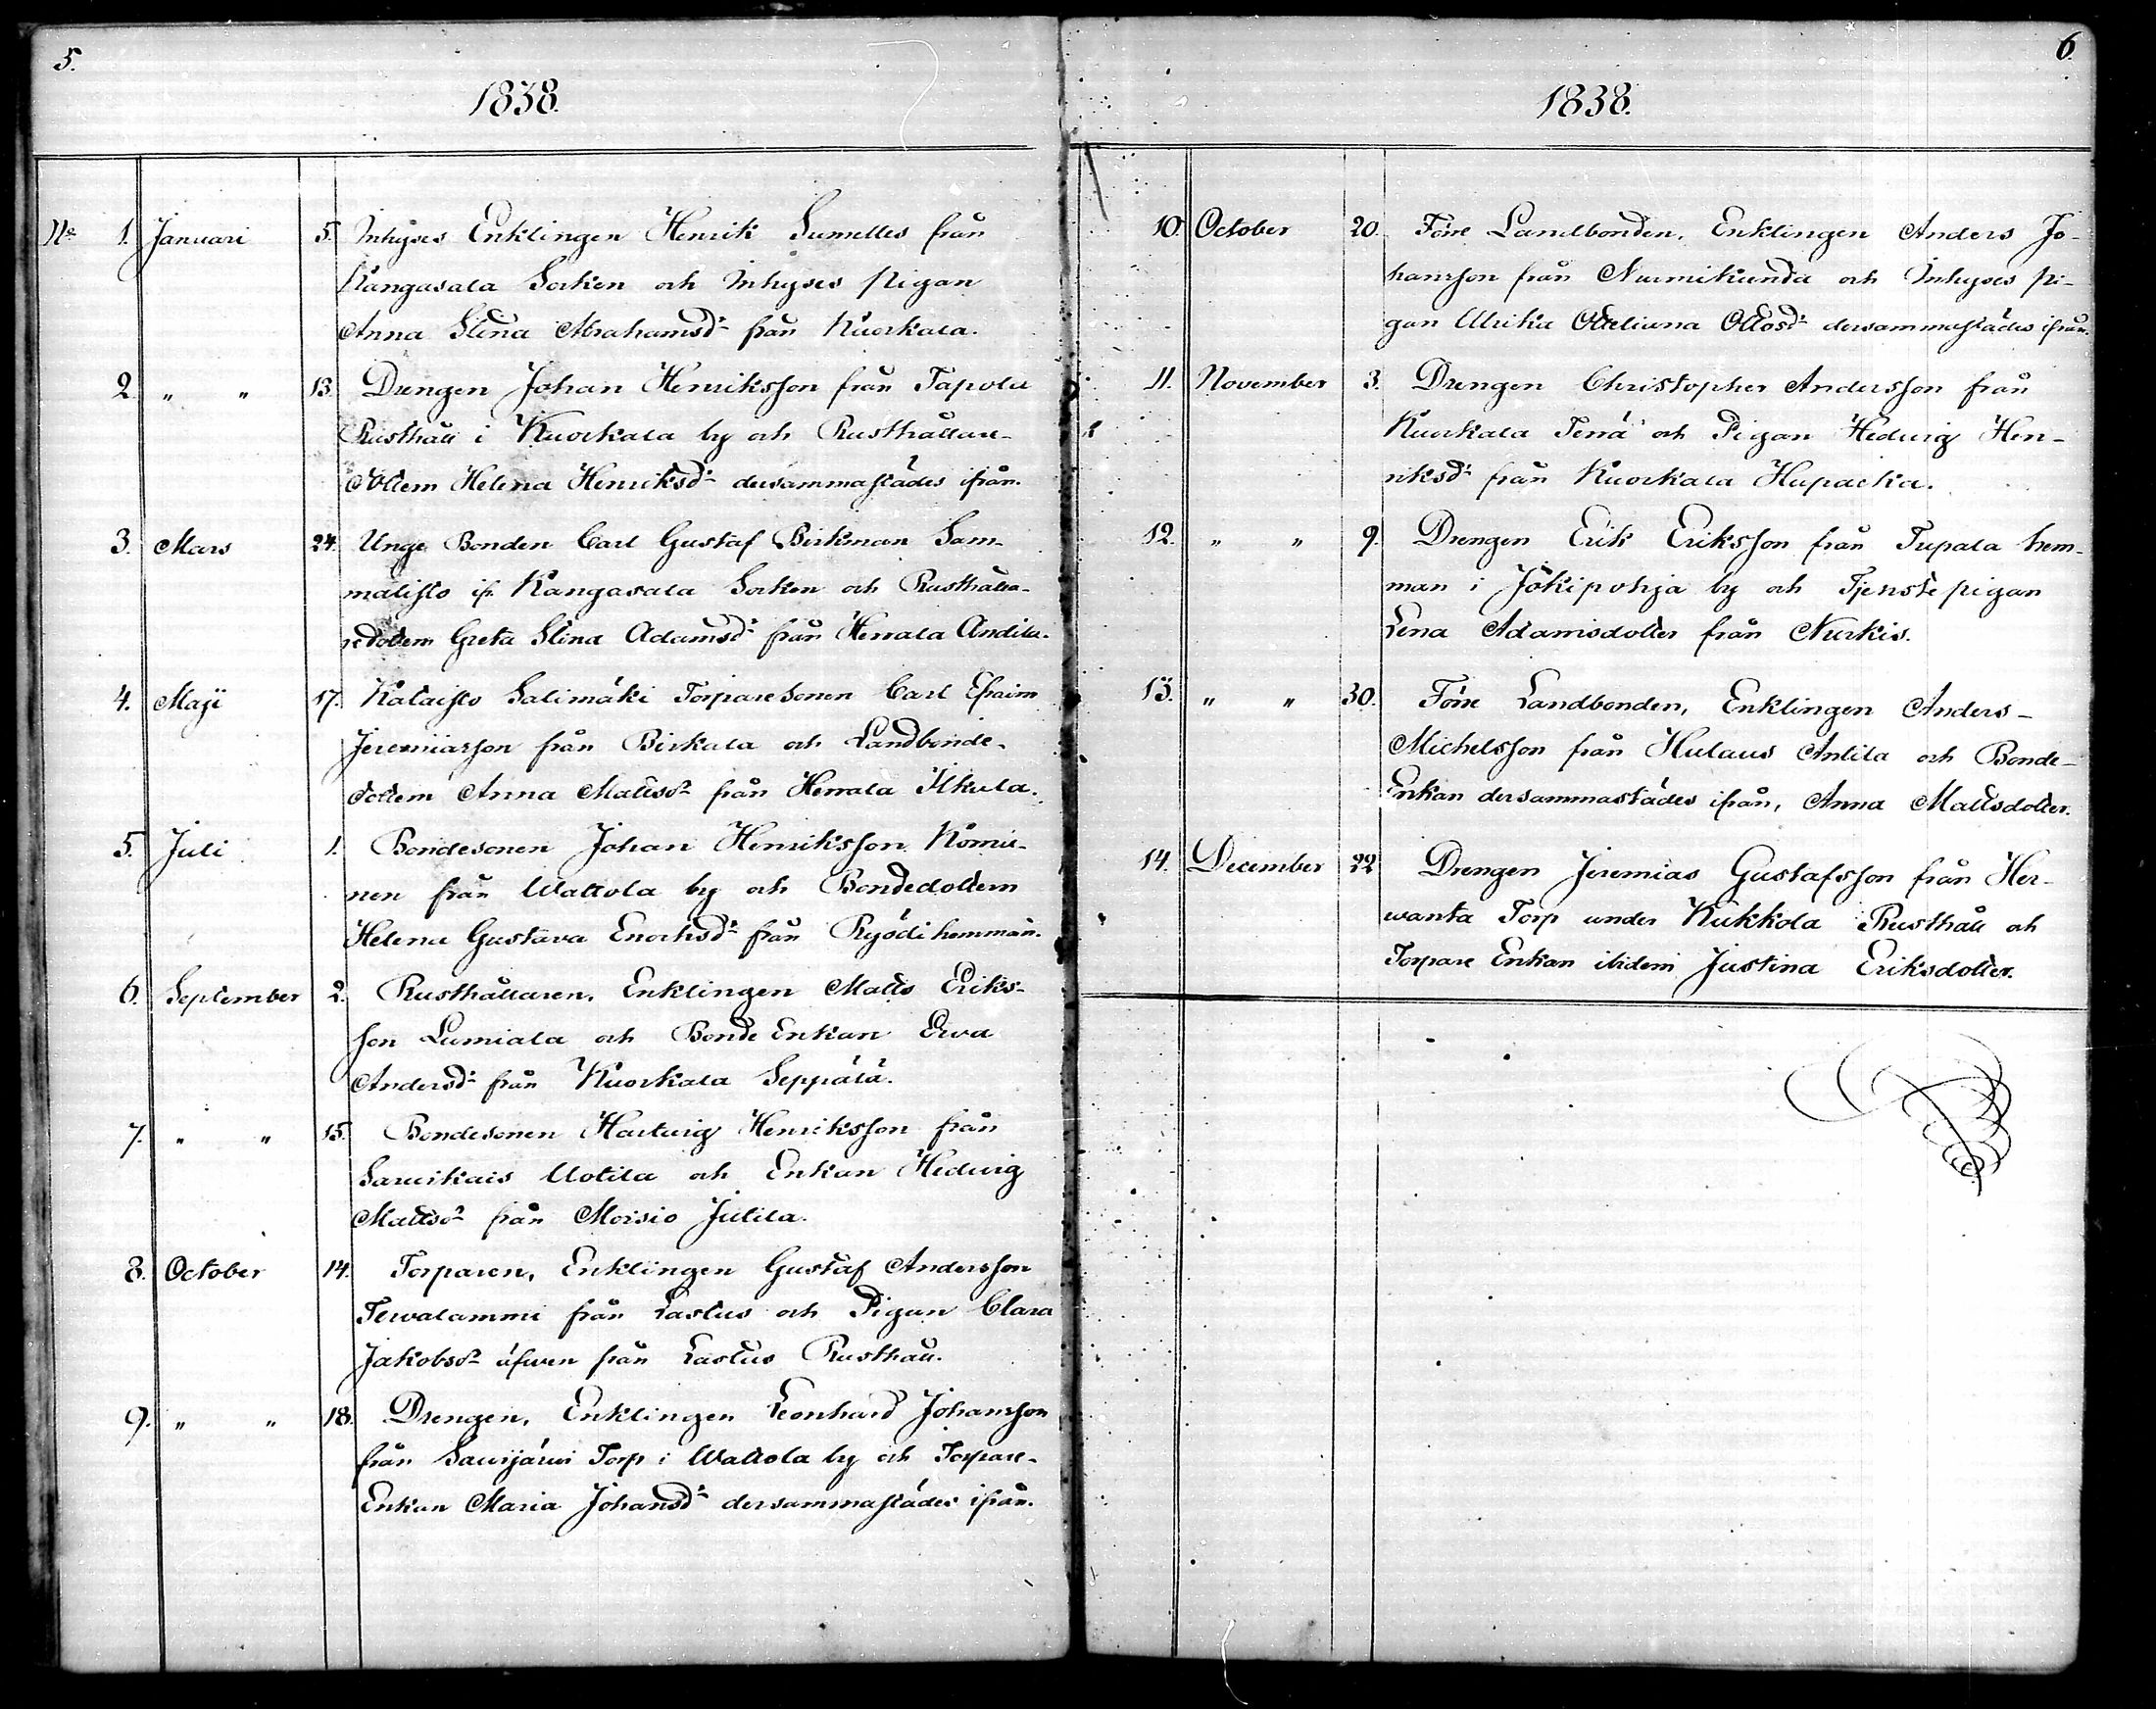 5.
1838.
No 1. Januari 5. Inhyses Enklingen Henrik Sumelles från
Kangasala Socken och Inhyses pigan
Anna Stina Abrahamsdr från Kuorkala.
2. " " 13. Drengen Johan Henriksson från Tapola
Rusthåll i Kuorkala by och Rusthållare-
dottern Helena Henriksdr dersammastädes ifrån.
3. Mars 24. Unge Bonden Carl Gustaf Birkman Sam-
malisto ifr. Kangasala Socken och Rusthålla-
redottern Greta Stina Adamsdr från Herrala Andila.
4. Maji 17. Kalaisto Salimäki Torparesonen Carl Efraim
Jeremiasson från Birkala och Landbonde-
dottern Anna Mattsdr från Herrala Ilkula.
5. Juli 1. Bondesonen Johan Henriksson Komu-
nen från Wattola by och Bondedottern
Helena Gustava Enochsdr från Ryödi hemman.
6. September 2. Rusthållaren, Enklingen Matts Eriks-
son Lumiala och Bonde Enkan Ewa
Andersdr från Kuorkala Seppälä.
7. " " 15. Bondesonen Hartwig Henriksson från
Sarwikais Uotila och Enkan Hedwig
Mattsdr från Moisio Julila.
8. October 14. Torparen, Enklingen Gustaf Andersson
Terwalammi från Lastus och Pigan Clara
Jakobsdr äfwen från Lastus Rusthåll.
9. " " 18. Drengen, Enklingen Leonhard Johansson
från Saurijärwi Torp i Wattola by och Torpare-
Enkan Maria Johansdr dersammastädes ifrån.
6.
1838.
10. October 20. Förre Landbonden, Enklingen Anders Jo-
hansson från Nurmikunda och Inhyses pi-
gan Ulrika Otteliana Ottosdr dersammastädes ifrån.
11. November 3. Drengen Christopher Andersson från
Kuorkala Terrä och Pigan Hedwig Hen-
riksdr från Kuorkala Hupacka.
12. " " 9. Drengen Erik Eriksson från Tupala hem-
man i Jokipohja by och Tjenste pigan
Lena Adamsdotter från Nurkis.
13. " " 30. Förre Landbonden, Enklingen Anders-
Michelsson från Hulaus Antila och Bonde-
Enkan dersammastädes ifrån, Anna Mattsdotter.
14. December 22 Drengen Jeremias Gustafsson från Her-
wanta Torp under Kukkola Rusthåll och
Torpare Enkan ibidem Justina Eriksdotter.